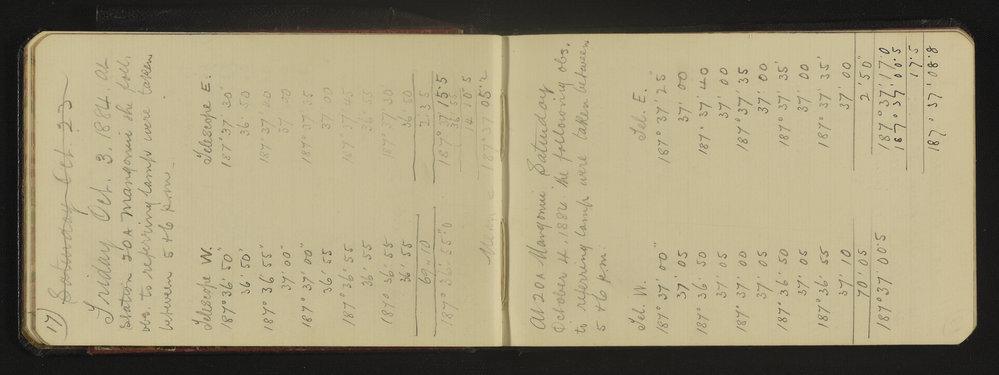 17)
Saturday Oct. 23
Friday Oct. 3, 1884. At
Station 20A Mangonui the foll.
obs. to referring lamp were taken
between 5 & 6 p.m.
Telescope W. Telescope E.
187° 36' 50" 187° 37' 30"
36' 50' 36 50
187° 36' 55 187 37 00
37' 00" 37 00
187° 37' 00" 187° 37 35
36 55 37 00
187° 36' 55 187 37 45
36 55 36 55
187° 36 55 187° 37 30
36 55 36 50
69 10 2 35
187° 36' 55"0 187° 37 15.5
36 55
10 5
Mean = 187 37 05.2
At 20A Mangonui Saturday
October 4, 1884 the following obs.
to referring lamp were taken between
5 & 6 p.m.
Tel. W. Tel. E.
187° 37' 00" 187° 37' 25"
37' 05 37' 00
187° 36' 50 187° 37' 40
37' 05 37' 00
187° 37' 00 187° 37' 35
37' 05 37' 00
187° 36' 50 187° 37' 35'
37' 05 37' 00
187° 36' 55 187° 37' 35'
37' 10 37' 00
70' 05 2' 50"
187° 37' 00.5 187° 37' 17.0
187° 37' 00.5
17.5
187° 37' 08.8